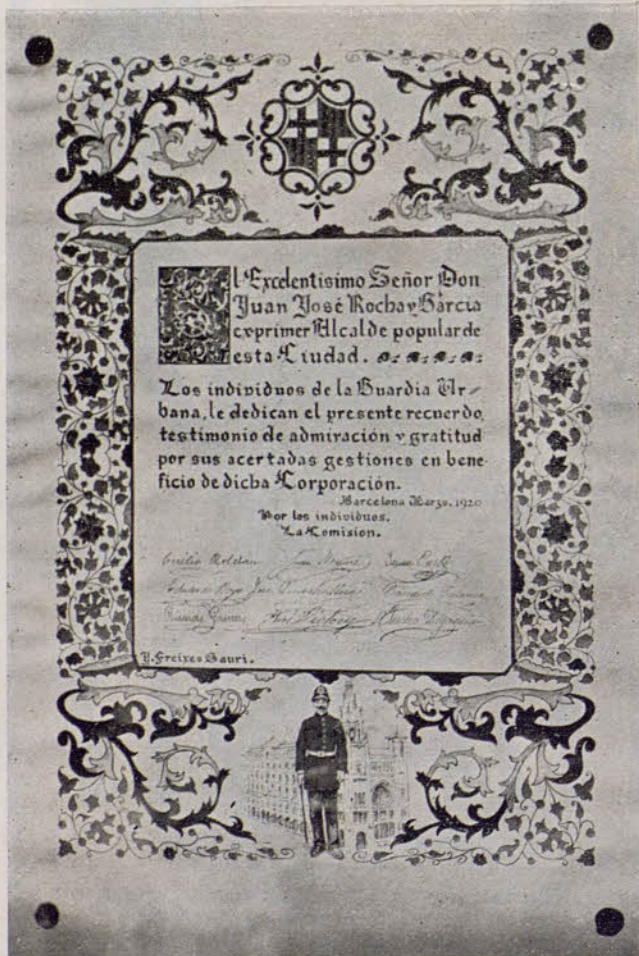 Al Excelentisimo Señor Don
Juan José Rocha y Garcia
ex primer Alcalde popular de
esta Ciudad.
Los individuos de la Guardia Ur-
bana, le dedican el presente recuerdo,
testimonio de admiración y gratitud
por sus acertadas gestiones en bene-
ficio de dicha Corporación.
Barcelona Marzo, 1920
Por los individuos.
La Comision.
Emilio Roldán Juan
Eduardo José
Ricardo José
Freixes Sauri.